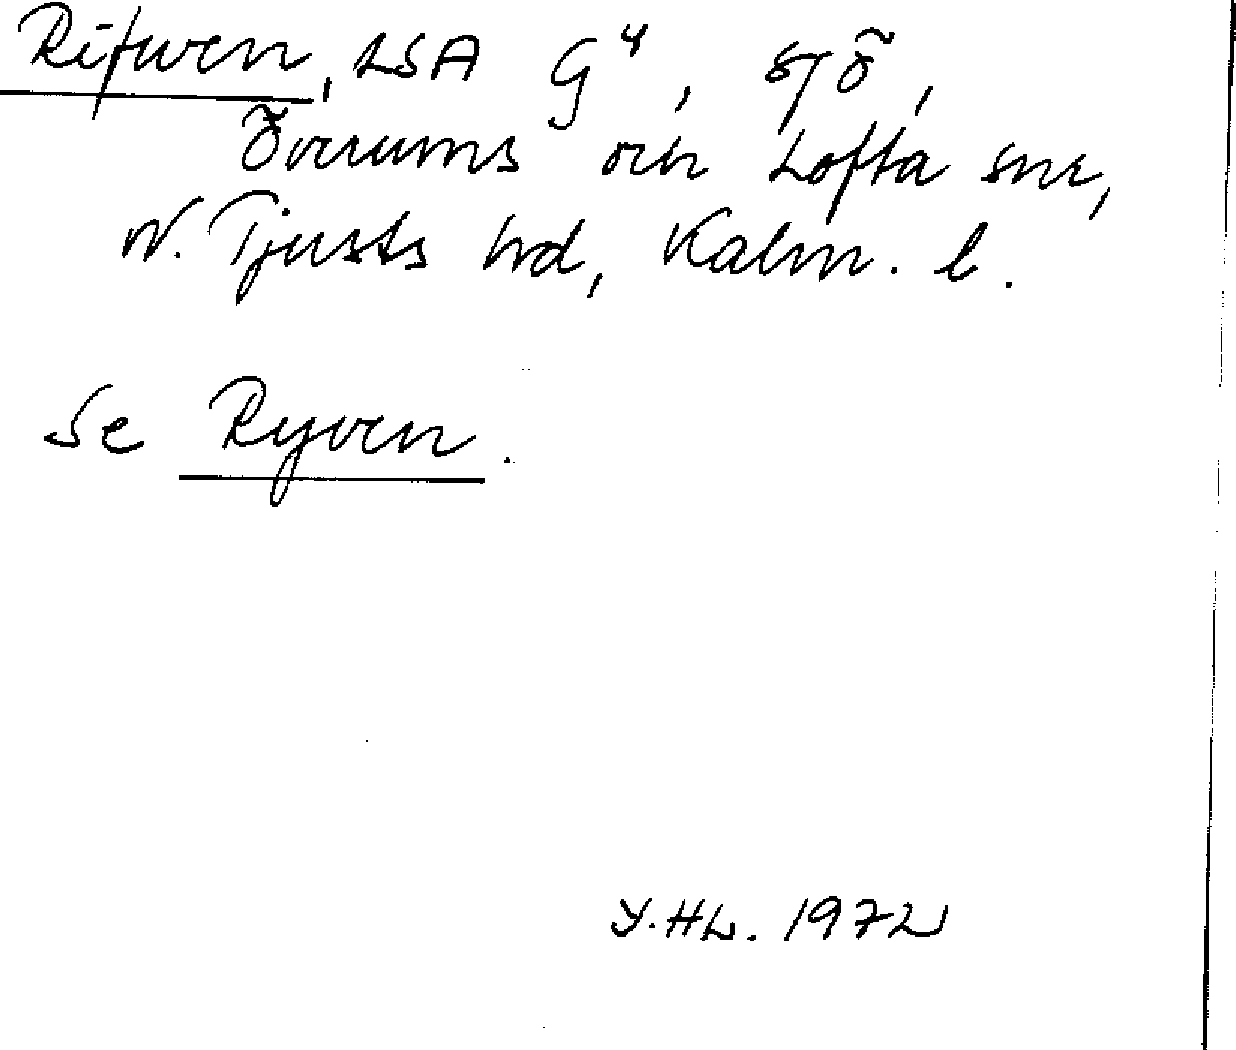 Rifwen, LSA G⁴, sjö,
Överums och Lofta snr,
N. Tjusts hd, Kalm. l.
Se Ryven.
Y.HL. 1972